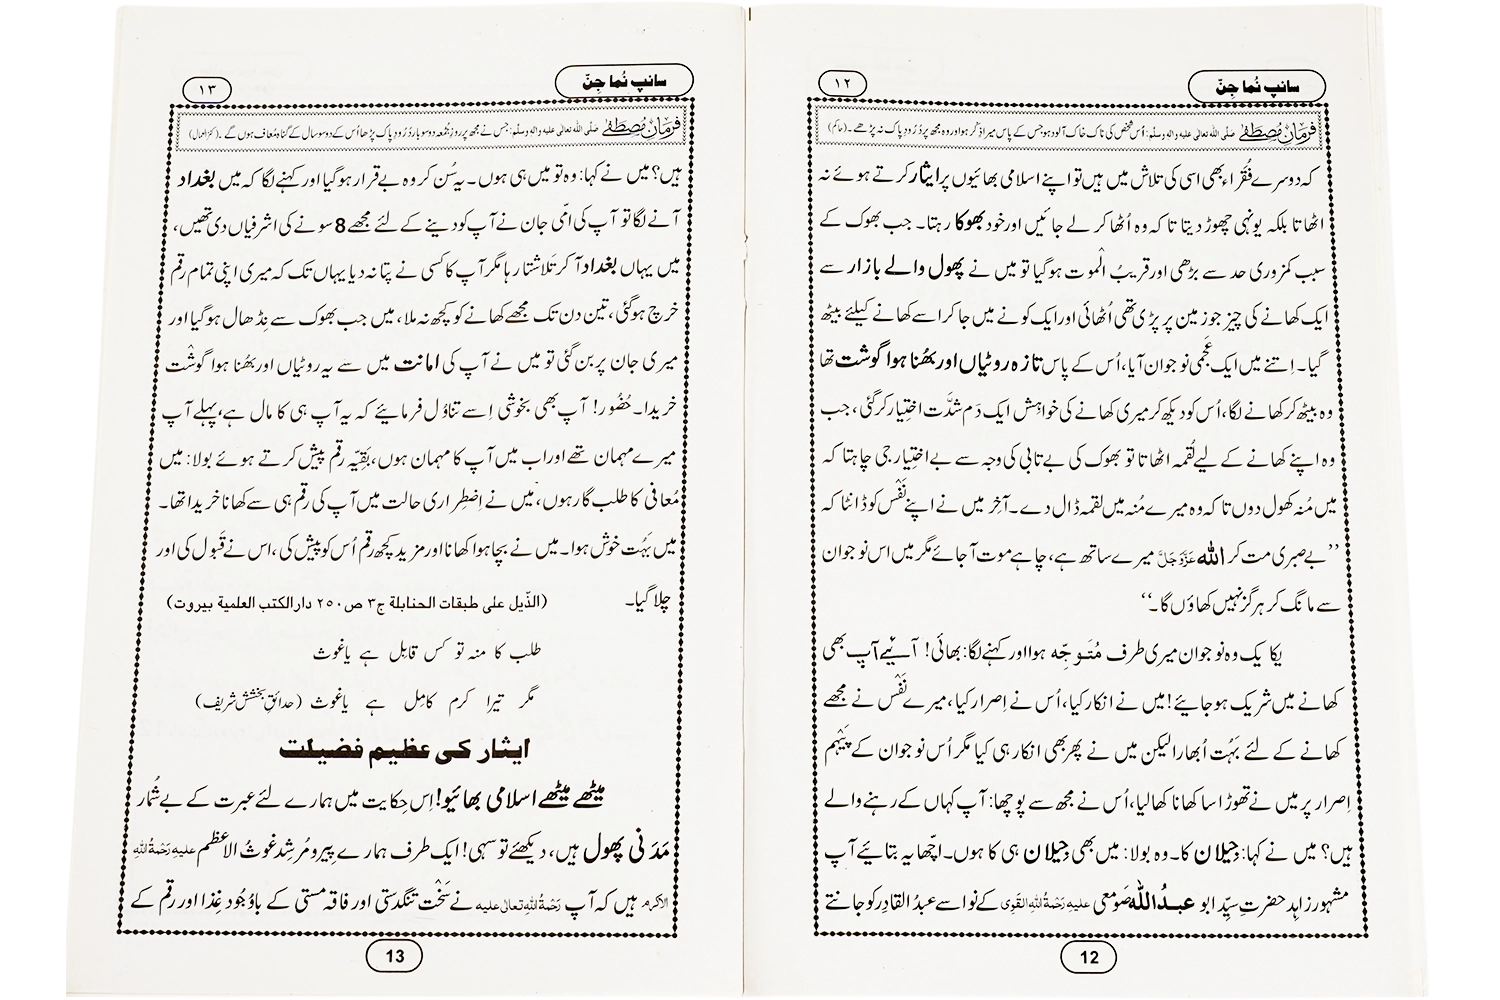 سانپ نُما جِنّ
۱۲
فرمانِ مُصطَفٰے صلَّی اللہ تعالیٰ علیہ واٰلہٖ وسلَّم: اُس شخص کی ناک خاک آلود ہو جس کے پاس میرا ذِکر ہو اور وہ مجھ پر دُرُودِ پاک نہ پڑھے۔ (حاکم)
کہ دوسرے فُقَراء بھی اسی کی تلاش میں ہیں تو اپنے اسلامی بھائیوں پر ایثار کرتے ہوئے نہ
اٹھاتا بلکہ یونہی چھوڑ دیتا تاکہ وہ اُٹھا کر لے جائیں اور خود بھوکا رہتا۔ جب بھوک کے
سبب کمزوری حد سے بڑھی اور قریبُ الْموت ہوگیا تو میں نے پھول والے بازار سے
ایک کھانے کی چیز جو زمین پر پڑی تھی اُٹھائی اور ایک کونے میں جا کر اسے کھانے کیلئے بیٹھ
گیا۔ اِتنے میں ایک عَجَمی نوجوان آیا، اُس کے پاس تازہ روٹیاں اور بھُنا ہوا گوشت تھا
وہ بیٹھ کر کھانے لگا، اُس کو دیکھ کر میری کھانے کی خواہش ایک دَم شدَّت اِختِیار کر گئی، جب
وہ اپنے کھانے کے لیے لُقمہ اٹھاتا تو بھوک کی بے تابی کی وجہ سے بے اختِیار جی چاہتا کہ
میں مُنہ کھول دوں تاکہ وہ میرے مُنہ میں لقمہ ڈال دے۔ آخِر میں نے اپنے نَفْس کو ڈانٹا کہ
’’بے صبری مت کر اللہ عَزَّوَجَلَّ میرے ساتھ ہے، چاہے موت آجائے مگر میں اس نوجوان
سے مانگ کر ہرگز نہیں کھاؤں گا۔‘‘
یکایک وہ نوجوان میری طرف مُتَوجِّہ ہوا اور کہنے لگا: بھائی! آیئے آپ بھی
کھانے میں شریک ہو جایئے! میں نے انکار کیا، اُس نے اِصرار کیا، میرے نَفْس نے مجھے
کھانے کے لئے بَہُت اُبھارا لیکن میں نے پھر بھی انکار ہی کیا مگر اُس نوجوان کے پَیْہَم
اِصرار پر میں نے تھوڑا سا کھانا کھالیا، اُس نے مجھ سے پوچھا: آپ کہاں کے رہنے والے
ہیں؟ میں نے کہا: جِیلان کا۔ وہ بولا: میں بھی جِیلان ہی کا ہوں۔ اچھّا یہ بتائیے آپ
مشہور زاہِد حضرتِ سیِّد ابو عبدُاللہ صَومَعی علیہ رَحْمَۃُ اللہِ القَوِی کے نواسے عبدُ القادِر کو جانتے
12
سانپ نُما جِنّ
۱۳
فرمانِ مُصطَفٰے صلَّی اللہ تعالیٰ علیہ واٰلہٖ وسلَّم: جس نے مجھ پر روزِ جُمُعہ دو سو بار دُرُودِ پاک پڑھا اُس کے دو سو سال کے گناہ مُعاف ہوں گے۔ (کنز العمال)
ہیں؟ میں نے کہا: وہ تو میں ہی ہوں۔ یہ سُن کر وہ بے قرار ہوگیا اور کہنے لگا کہ میں بغداد
آنے لگا تو آپ کی امّی جان نے آپ کو دینے کے لئے مجھے 8 سونے کی اشرفیاں دی تھیں،
میں یہاں بغداد آکر تَلاشتا رہا مگر آپ کا کسی نے پتا نہ دیا یہاں تک کہ میری اپنی تمام رقم
خرچ ہوگئی، تین دن تک مجھے کھانے کو کچھ نہ ملا، میں جب بھوک سے نِڈھال ہوگیا اور
میری جان پر بن گئی تو میں نے آپ کی امانت میں سے یہ روٹیاں اور بھُنا ہوا گوشْت
خریدا۔ حُضُور! آپ بھی بخوشی اِسے تناوُل فرمائیے کہ یہ آپ ہی کا مال ہے، پہلے آپ
میرے مہمان تھے اور اب میں آپ کا مہمان ہوں، بقِیّہ رقم پیش کرتے ہوئے بولا: میں
مُعافی کا طلب گار ہوں، میں نے اِضطِراری حالت میں آپ کی رقم ہی سے کھانا خریدا تھا۔
میں بَہُت خوش ہوا۔ میں نے بچا ہوا کھانا اور مزید کچھ رقم اُس کو پیش کی، اس نے قَبول کی اور
چلا گیا۔ (الذّیل علی طبقات الحنابلة ج۳ ص۲۵۰ دارالکتب العلمیة بیروت)
طلب کا منہ تو کس قابِل ہے یاغوث
مگر تیرا کرم کامِل ہے یاغوث (حدائقِ بخشش شریف)
ایثار کی عظیم فضیلت
میٹھے میٹھے اسلامی بھائیو! اِس حِکایت میں ہمارے لئے عبرت کے بے شُمار
مَدَنی پھول ہیں، دیکھئے تو سہی! ایک طرف ہمارے پیر و مُرشِد غوثُ الاَعظم علیہِ رَحْمَۃُ اللہِ
الاکرم ہیں کہ آپ رَحْمَۃُ اللہِ تعالیٰ علیہ نے سَخْت تنگدستی اور فاقہ مستی کے باوُجُود غِذا اور رقم کے
13